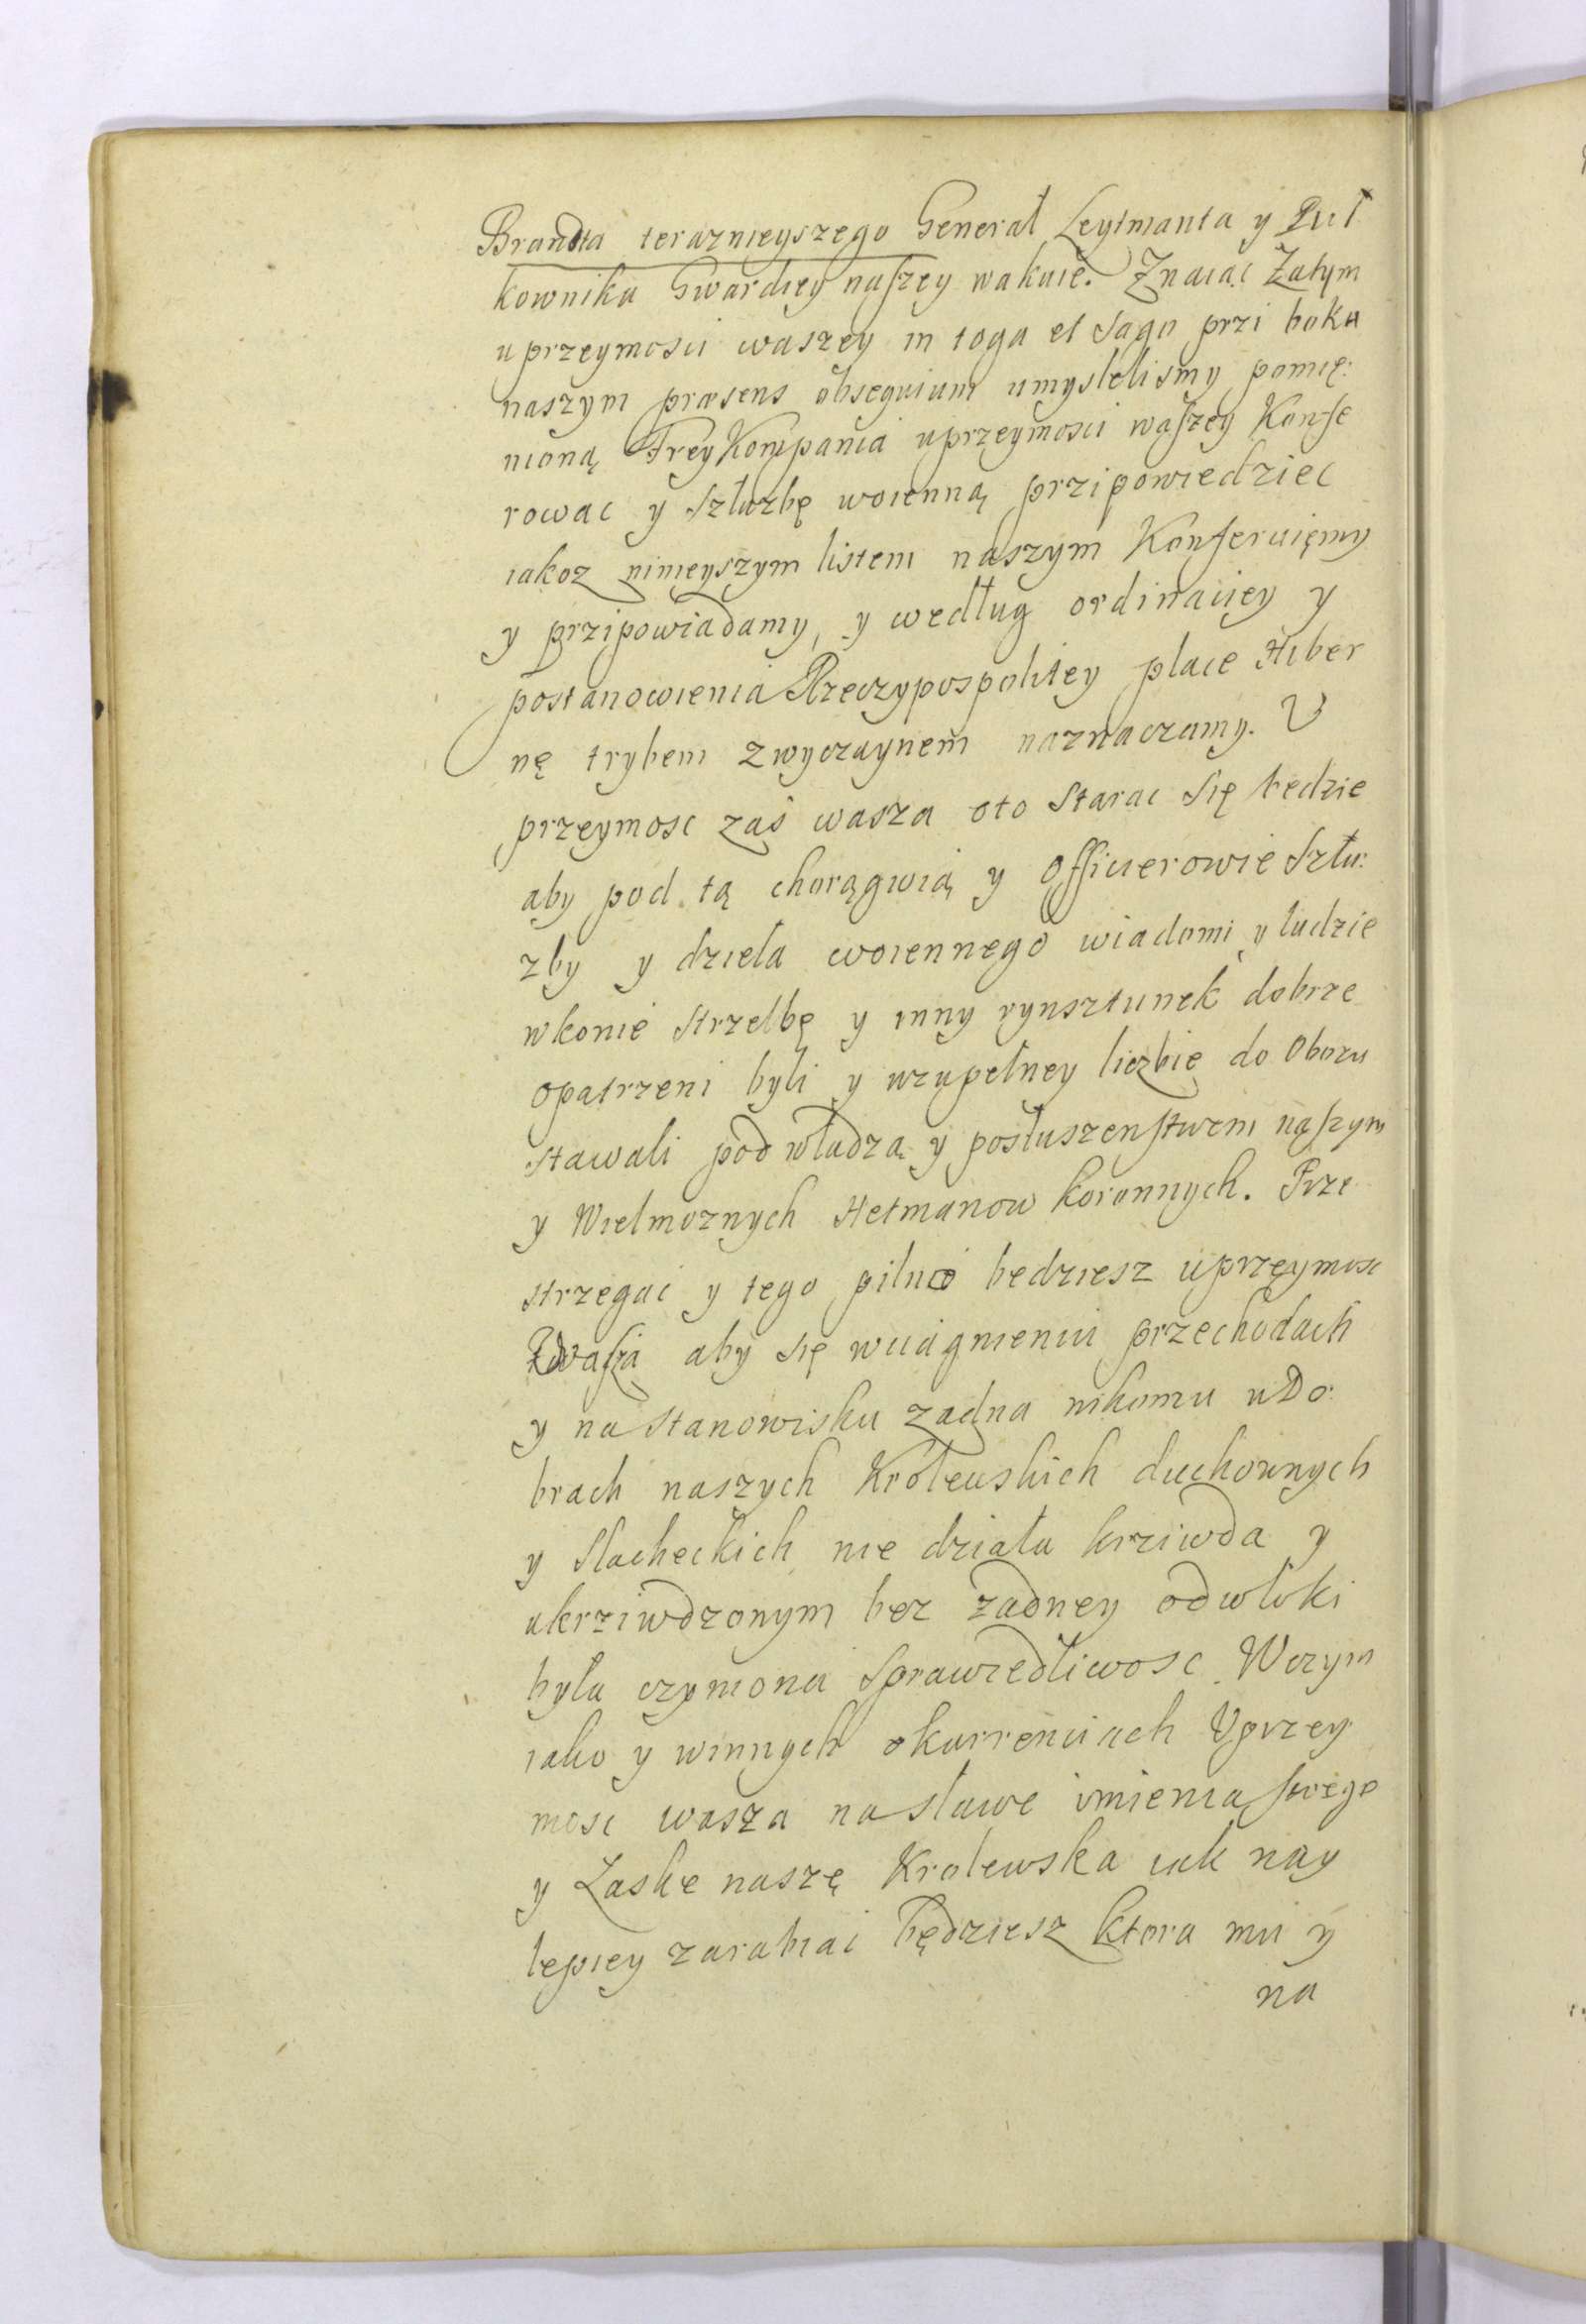 Brandta teraznieyszego Generał Leytmanta y Puł
kownika Gwardiey naszey wakuie. Znaiąc Zatym
uprzeymosci waszey in toga et sago przi boku
naszym præsens obsequium umyslelismy pomię:
nioną FreyKompania uprzeymosci waszey Konfe
rowac y Szłuzbę woienną przipowiedziec
iakoz ninieyszym listem naszym Konferuięmy
y przipowiadamy, y według ordinaciey y
postanowienia Rzeczypospolitey place Hiber
nę trybem zwyczaynem naznaczamy. V
przeymosc zaś wasza oto Starac Się bedzie
aby pod tą chorągwią y Officierowie Szłu:
zby y dzieła woiennego wiadomi y ludzie
wkonie Strzelbę y inny rynsztunek dobrze
opatrzeni byli y wzupełney liczbie do Obozu
stawali pod władzą y posłuszenstwem naszym
y Wielmoznych Hetmanow koronnych. Prze
strzegac y tego pilno bedziesz uprzeymosc
wasza aby się wciągnieniu przechodach
y na Stanowisku zadna nikomu wDo
brach naszych Krolewskich duchownych
y Slacheckich nie działa krziwda y
ukrziwdzonym bez zadney odwłoki
była czyniona Sprawiedliwosc. Wczym
iako y winnych okurrenciach Vprzey
mosc wasza na sławe imienia swego
y Łaske naszę Krolewska iak nay
lepiey zarabiac będziesz ktora mu y
na